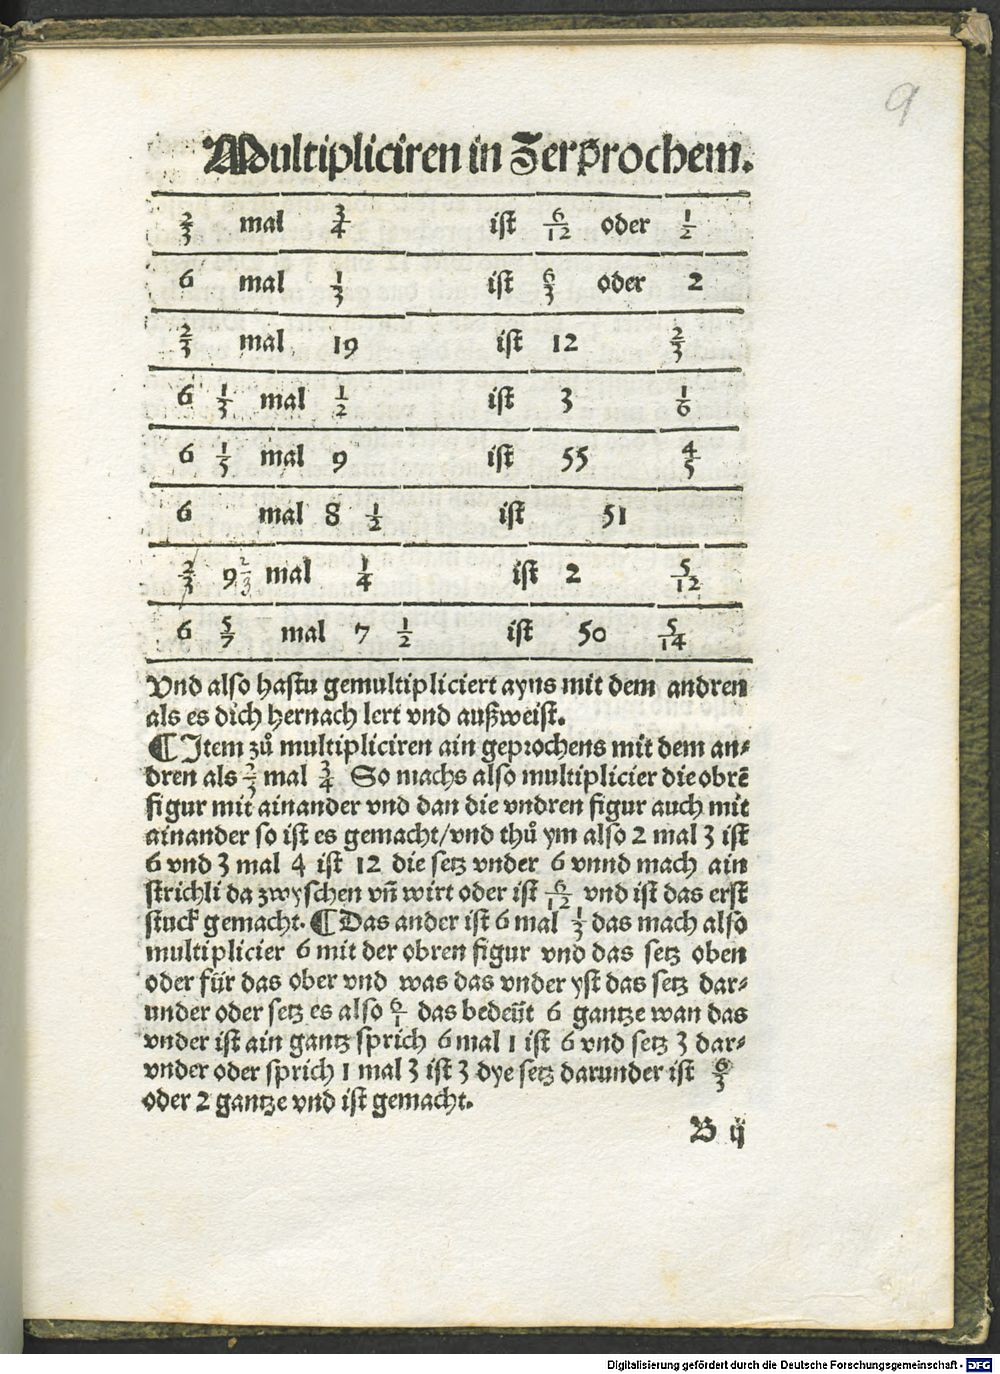 9
Multipliciren in Zerprochem.
2/3 mal 3/4 ist 6/12 oder 1/2
6 mal 1/3 ist 6/3 oder 2
2/3 mal 19 ist 12 2/3
6 1/3 mal 1/2 ist 3 1/6
6 1/5 mal 9 ist 55 4/5
6 mal 8 1/2 ist 51
2/3 9 2/3 mal 1/4 ist 2 5/12
6 5/7 mal 7 1/2 ist 50 5/14
Vnd also hastu gemultipliciert ayns mit dem andren
als es dich hernach lert vnd außweist.
¶ Item zů multipliciren ain geprochens mit dem an⸗
dren als 2/3 mal 3/4 So machs also multiplicier die obrē
figur mit ainander vnd dan die vndren figur auch mit
ainander so ist es gemacht/vnd thů ym also 2 mal 3 ist
6 vnd 3 mal 4 ist 12 die setz vnder 6 vnnd mach ain
strichli da zwyschen vñ wirt oder ist 6/12 vnd ist das erst
stuck gemacht. ¶ Das ander ist 6 mal 1/3 das mach also
multiplicier 6 mit der obren figur vnd das setz oben
oder für das ober vnd was das vnder yst das setz dar⸗
under oder setz es also 6/1 das bedeüt 6 gantze wan das
vnder ist ain gantz sprich 6 mal 1 ist 6 vnd setz 3 dar⸗
vnder oder sprich 1 mal 3 ist 3 dye setz darunder ist 6/3
oder 2 gantze vnd ist gemacht.
B ij
Digitalisierung gefördert durch die Deutsche Forschungsgemeinschaft - DFG